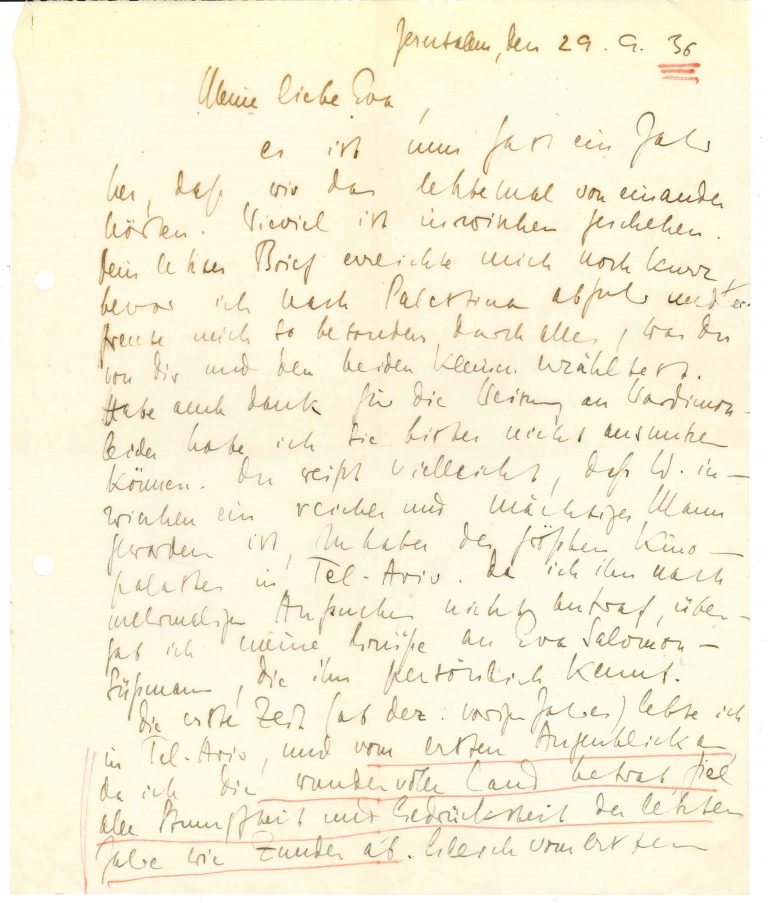 Jerusalem, den 29. 9. 36
Meine liebe Eva,
es ist nun fast ein Jahr
her, daß wir das letztemal von einander
hörten. Wieviel ist inzwischen geschehen.
Dein letzter Brief erreichte mich noch kurz
bevor ich nach Palestina abfuhr und er-
freute mich so besonders durch alles, was du
von dir und den beiden Kleinen erzähltest.
Habe auch Dank für die Weisung an Wardimon-
leider habe ich sie bisher nicht ausnutzen
können. Du weißt vielleicht, daß W. in-
zwischen ein reicher und mächtiger Mann
geworden ist, Inhaber des größten Kino-
palastes in Tel-Aviv. Da ich ihn nach
mehrmaligem Aufsuchen nicht antraf, über-
gab ich meine Grüße an Eva Salomon-
Süßmann, die ihn persönlich kennt.
Die erste Zeit (ab Dez. vorigen Jahres) lebte ich
in Tel-Aviv, und vom ersten Augenblick an
da ich dies wundervolle Land betrat fiel
alle Dumpfheit und Gedrücktheit der letzten
Jahre wie Zunder ab. Gleich vom ersten